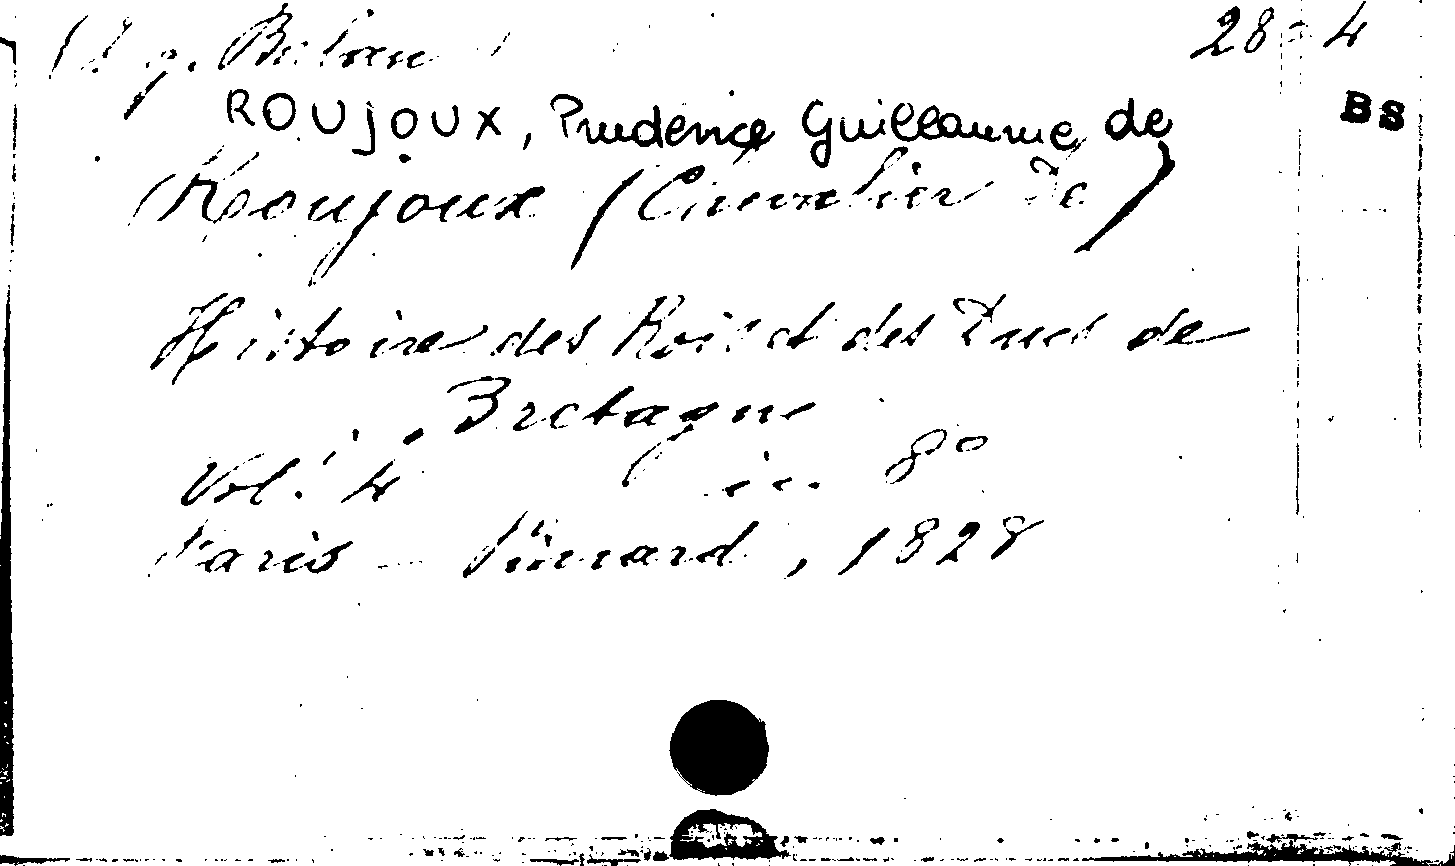 28 4
BS
ROUJOUX, Prudence Guillaume de
Roujoux (Chevalier de)
Histoire des Rois et des Ducs de
Bretagne
Vol: 4 in 8°
Paris – Dinard, 1828